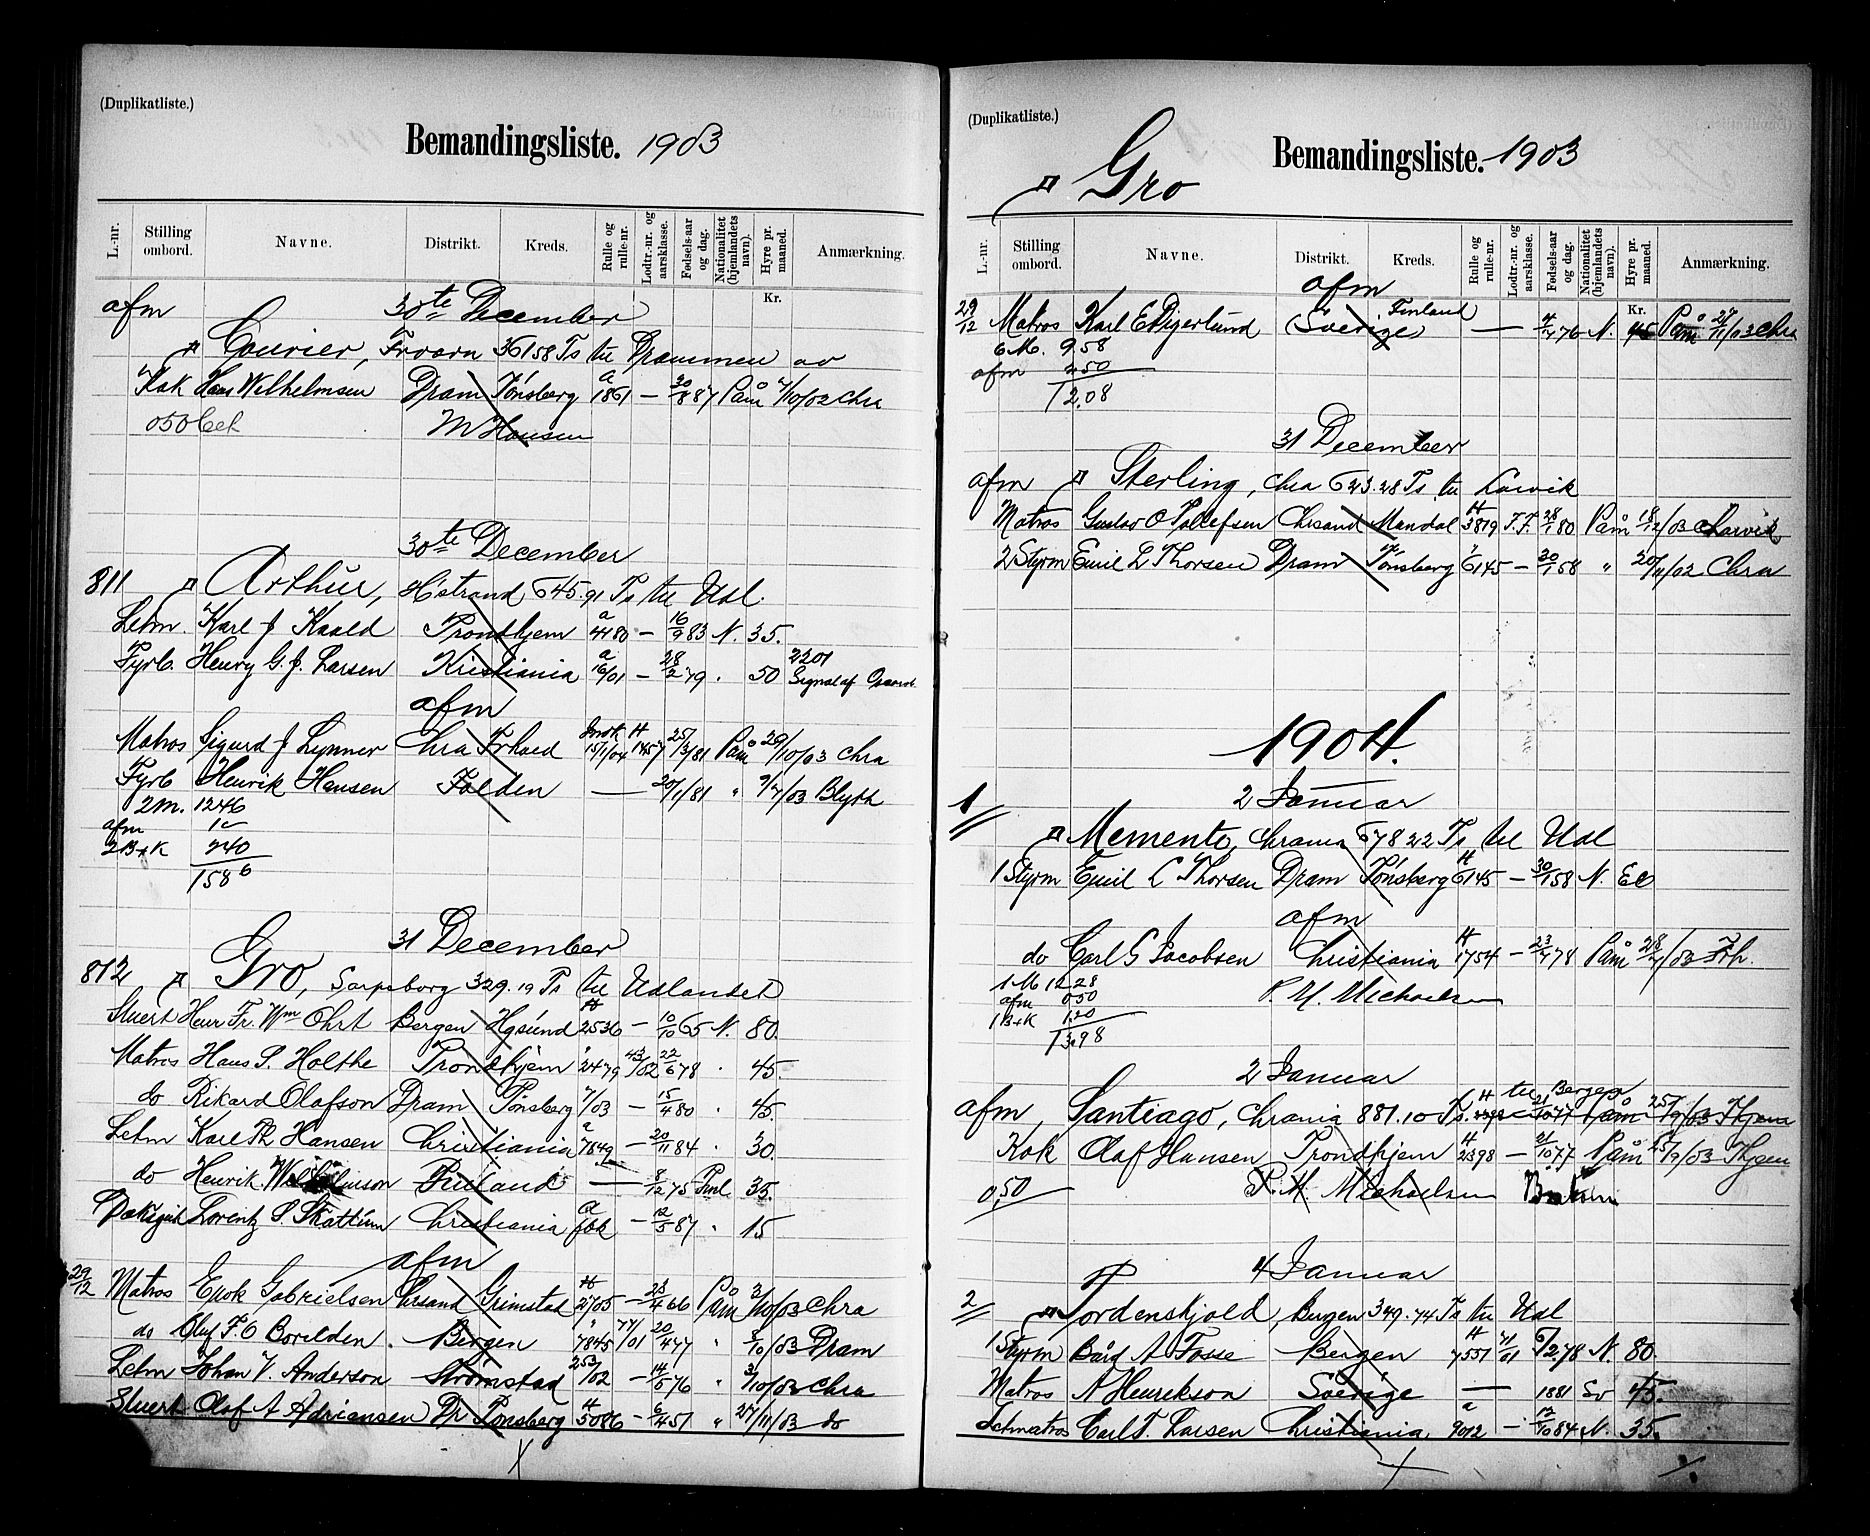 (Duplikatliste.)
Bemandingsliste. 1903
L.-nr. Stilling ombord. Navne. Distrikt. Kreds. Rulle og rulle-nr. Lodtr.-nr. og aarsklasse. Fødsels-aar og dag. Nationalitet (hjemlandets navn). Hyre pr. maaned. Anmærkning.
Kr.
afm 30te December
Courier, 36158 Ts til Drammen av
Kok Hans Wilhelmsen Dram Tönsberg a 1861 — 20/8 87 Påm 7/10/02 Chra
050 M Hansen
30te December
811 Arthur, H'strand 645.91 Ts til Udl.
Letm. Karl J Kaald Trondhjem a 4180 — 16/9 83 N. 35.
Fyrb. Henry G. J. Larsen Kristiania a 16/01 — 28/2 79 . 50
afm
Matros Sigurd J Lynner Chra 15/1/04 1457 25/3/81 Påm 29/10/03 Chra
Fyrb Henrik Hansen Folden — 20/1/81 " 7/7/03 Blyth
2 M. 1246
afm 1 -
2 B+K 240
1586
31 December
812 Gro, Sarpsborg 329.19 Ts til Udlandet
Stuert Henr Fr. Wm Ohrt Bergen Hgsund H 2536 — 10/10 65 N. 80.
Matros Hans S. Holthe Trondhjem " 2479 43/02 22/6 78 . 45.
do Rikard Olafson Dram Tönsberg 7/03 — 15/4 80 . 45.
Letm Karl Th Hansen Christiania a 7849 — 20/11 84 . 30.
do Henrik Finland — 8/12 75 Finl 35.
Dæksgut Lorentz S. Skattum Christiania a — 12/5 87 . 15
afm
29/12 Matros Enok Gabrielsen Chrsand Grimstad H 2705 — 23/4 66 Påm 2/10/03 Chra
do Oluf F. O Borilden. Bergen " 7845 77/01 20/4 77 " 8/10/03 Dram
Letm Johan V. Anderson Strømstad 253/02 — 14/5 76 " 2/10/03 Chra
Stuert Olof A Adriansen Dr Tönsberg H 5086 — 6/4 51 " 27/11/03 do
(Duplikatliste.)
Bemandingsliste. 1903
Gro
L.-nr. Stilling ombord. Navne. Distrikt. Kreds. Rulle og rulle-nr. Lodtr.-nr. og aarsklasse. Fødsels-aar og dag. Nationalitet (hjemlandets navn). Hyre pr. maaned. Anmærkning.
Kr.
afm
29/12 Matros Karl E Digerlund (Sverige) Finland — 76 N. 45 Påm 27/11/03 Chra
6 M. 958
afm 250
12.08
31 December
afm Sterling, Chra 623.28 Ts til Larvik
Matros Gustav O Tollefsen Chrsand Mandal H 3819 T.F. 28/1 80 Påm 18/12/03 Larvik
2 Styrm Emil L Thorsen Dram Tönsberg " 6145 — 30/1 58 " 20/11/02 Chra
1904.
2 Januar
1 Memento, Chrania 678 22 Ts til Udl
1 Styrm Emil L Thorsen Dram Tönsberg H 6145 — 30/1 58 N.
afm
do Carl G Jacobsen Christiania H 1754 — 23/7 78 Påm
1 M 12 28 P. M. Michaelsen
afm 050
1 B+K 1.20
13.98
2 Januar
afm Santiago, Chrania 881.10 Ts. til Bergen
Kok Olaf Hansen Trondhjem H 2398 — 21/10 77 Påm 25/9/03
0,50 P. M. Michaelsen
4 Januar
2 Tordenskjold, Bergen 349.74 Ts til Udl
1 Styrm Bård A Fosse Bergen H 7551 71/01 6/2 78 N. 80.
Matros A Henrikson Sverige — 1881 Sv 45.
Letmatros Carl T. Larsen Christiania a 9012 — 12/10 84 N. 35.